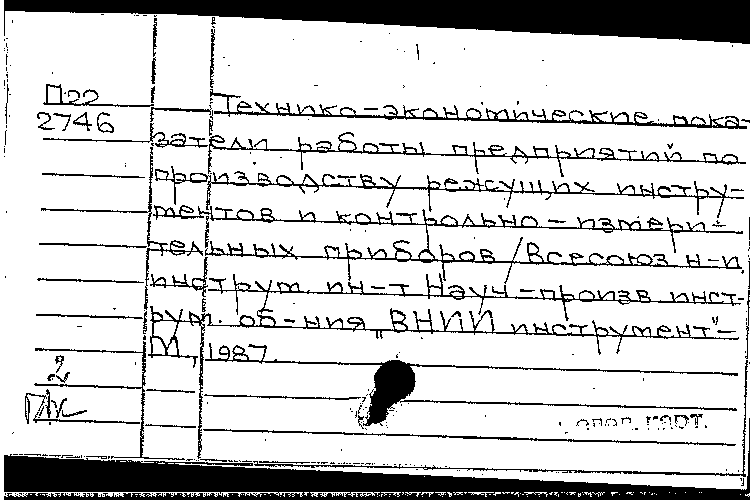 П22
2746
Технико-экономические пока-
затели работы предприятий по
производству режущих инстру-
ментов и контрольно-измери-
тельных приборов / Всесоюз н-и.
инструм. ин-т Науч-произв инст-
рум. об-ния "ВНИИ инструмент"-
М., 1987.
2